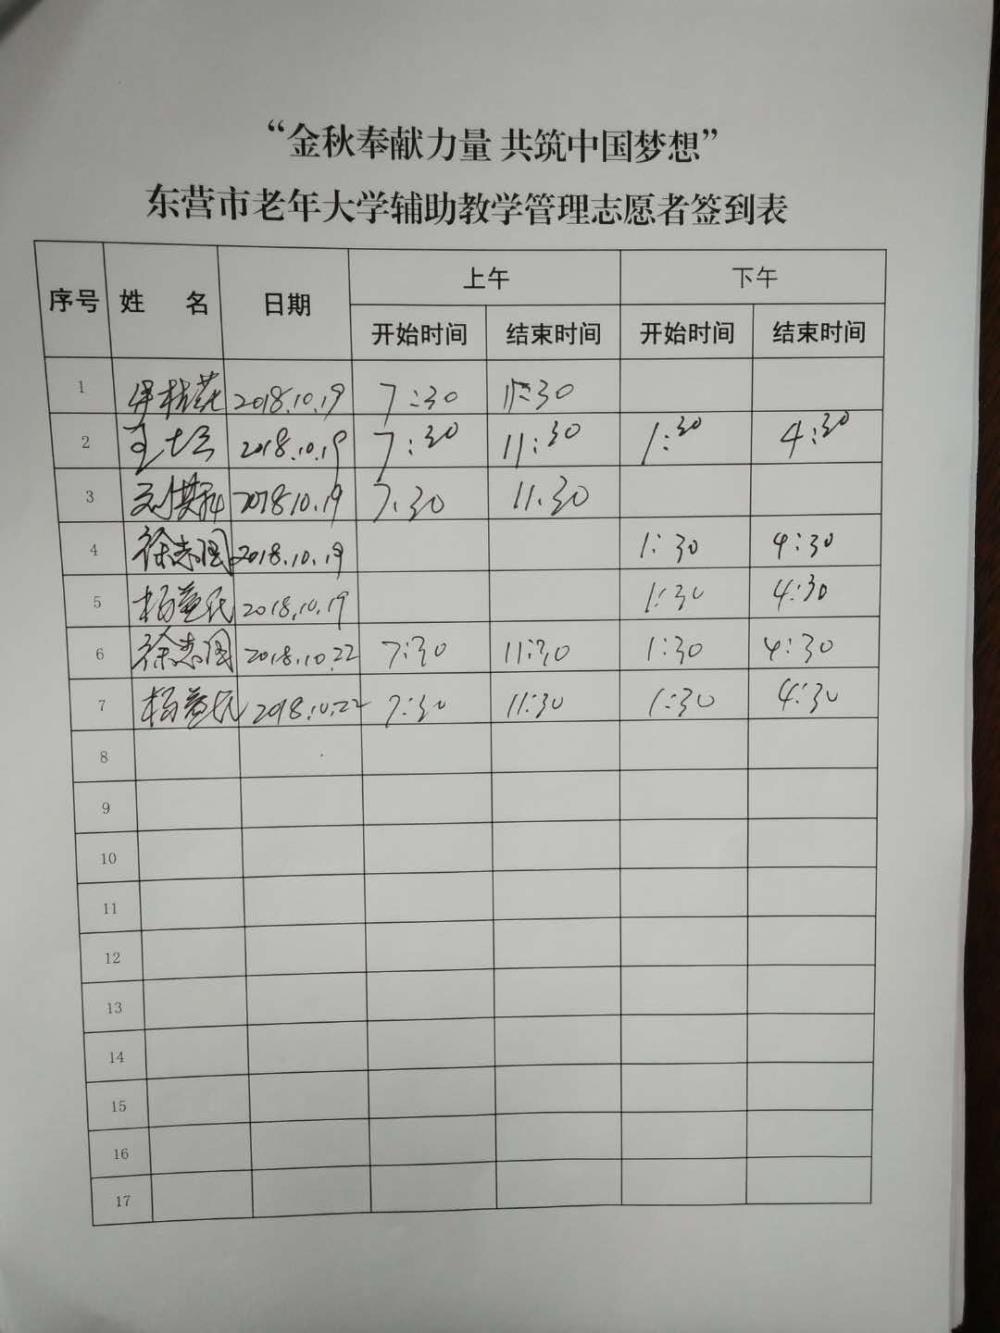 “金秋奉献力量 共筑中国梦想”
东营市老年大学辅助教学管理志愿者签到表
序号 姓 名 日期 上午 下午
开始时间 结束时间 开始时间 结束时间
1 2018.10.19 7:30 11:30
2 2018.10.19 7:30 11:30 1:30 4:30
3 2018.10.19 7:30 11:30
4 徐志国 2018.10.19 1:30 4:30
5 2018.10.19 1:30 4:30
6 徐志国 2018.10.22 7:30 11:30 1:30 4:30
7 2018.10.22 7:30 11:30 1:30 4:30
8
9
10
11
12
13
14
15
16
17